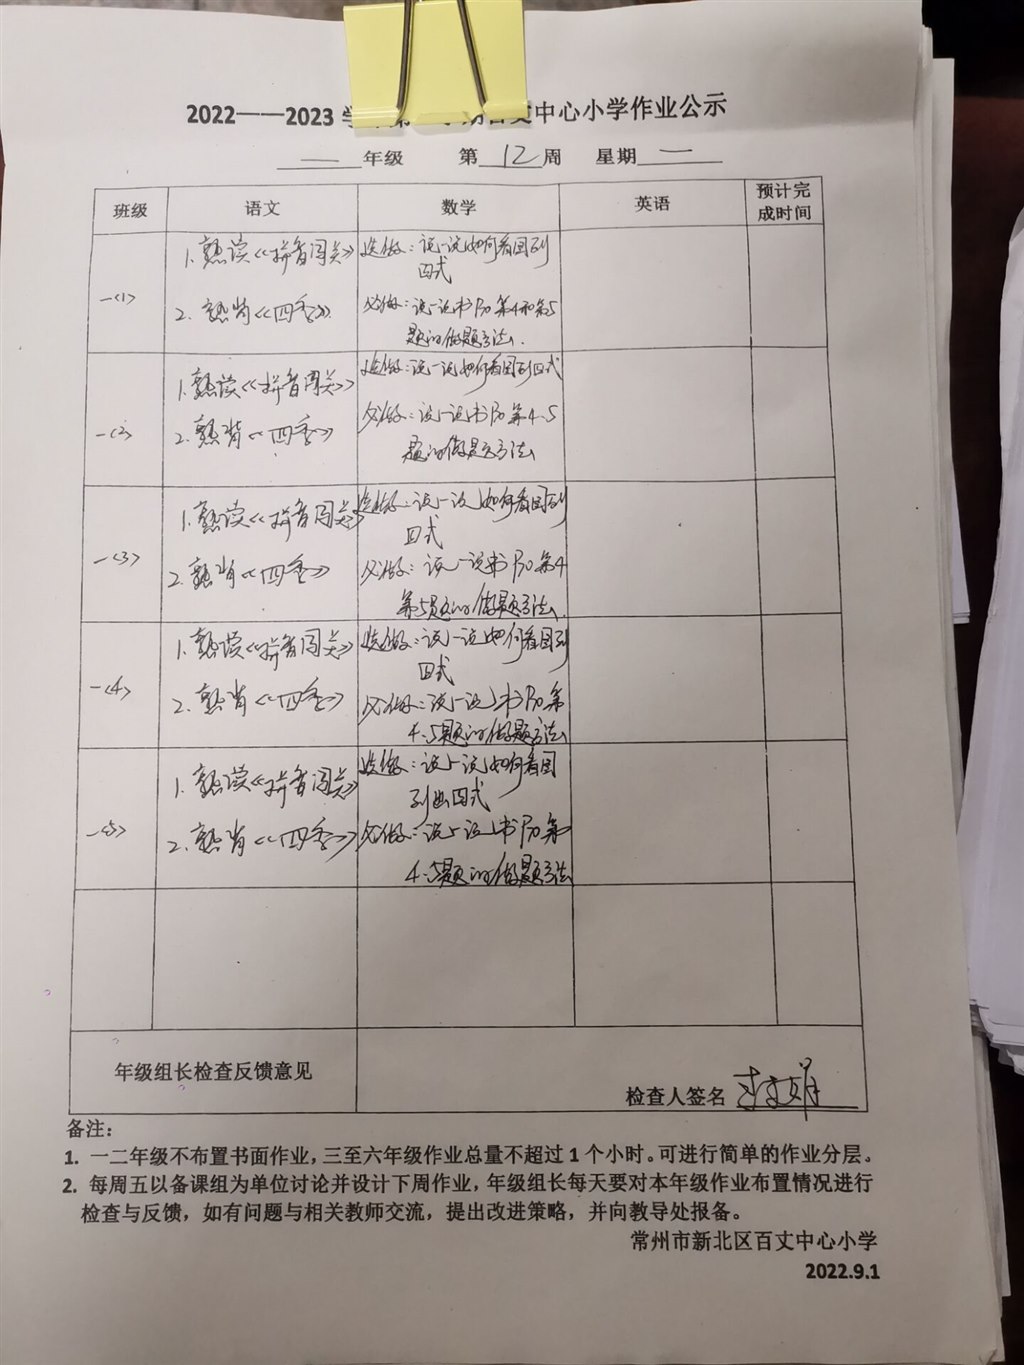 2022——2023 学 中心小学作业公示
一 年级 第 12 周 星期 一
班级 语文 数学 英语 预计完成时间
一(1) 1. 熟读《拼音闯关》 选做：说一说如何看图列
四式
2. 熟背《四季》 必做：说一说书P70第4和第5
题的做题方法.
一(2) 1. 熟读《拼音闯关》 选做：说一说如何看图列四式
2. 熟背《四季》 必做：说一说书P70第4、5
题的做题方法
一(3) 1. 熟读《拼音闯关》 选做：说一说如何看图列
四式
2. 熟背《四季》 必做：说一说书P70第4
第5题的做题方法.
一(4) 1. 熟读《拼音闯关》 选做：说一说如何看图列
四式
2. 熟背《四季》 必做：说一说书P70第
4、5题的做题方法
一(5) 1. 熟读《拼音闯关》 选做：说一说如何看图
列出四式
2. 熟背《四季》 必做：说一说书P70第
4、5题的做题方法
年级组长检查反馈意见 检查人签名
备注：
1. 一二年级不布置书面作业，三至六年级作业总量不超过1个小时。可进行简单的作业分层。
2. 每周五以备课组为单位讨论并设计下周作业，年级组长每天要对本年级作业布置情况进行
检查与反馈，如有问题与相关教师交流，提出改进策略，并向教导处报备。
常州市新北区百丈中心小学
2022.9.1